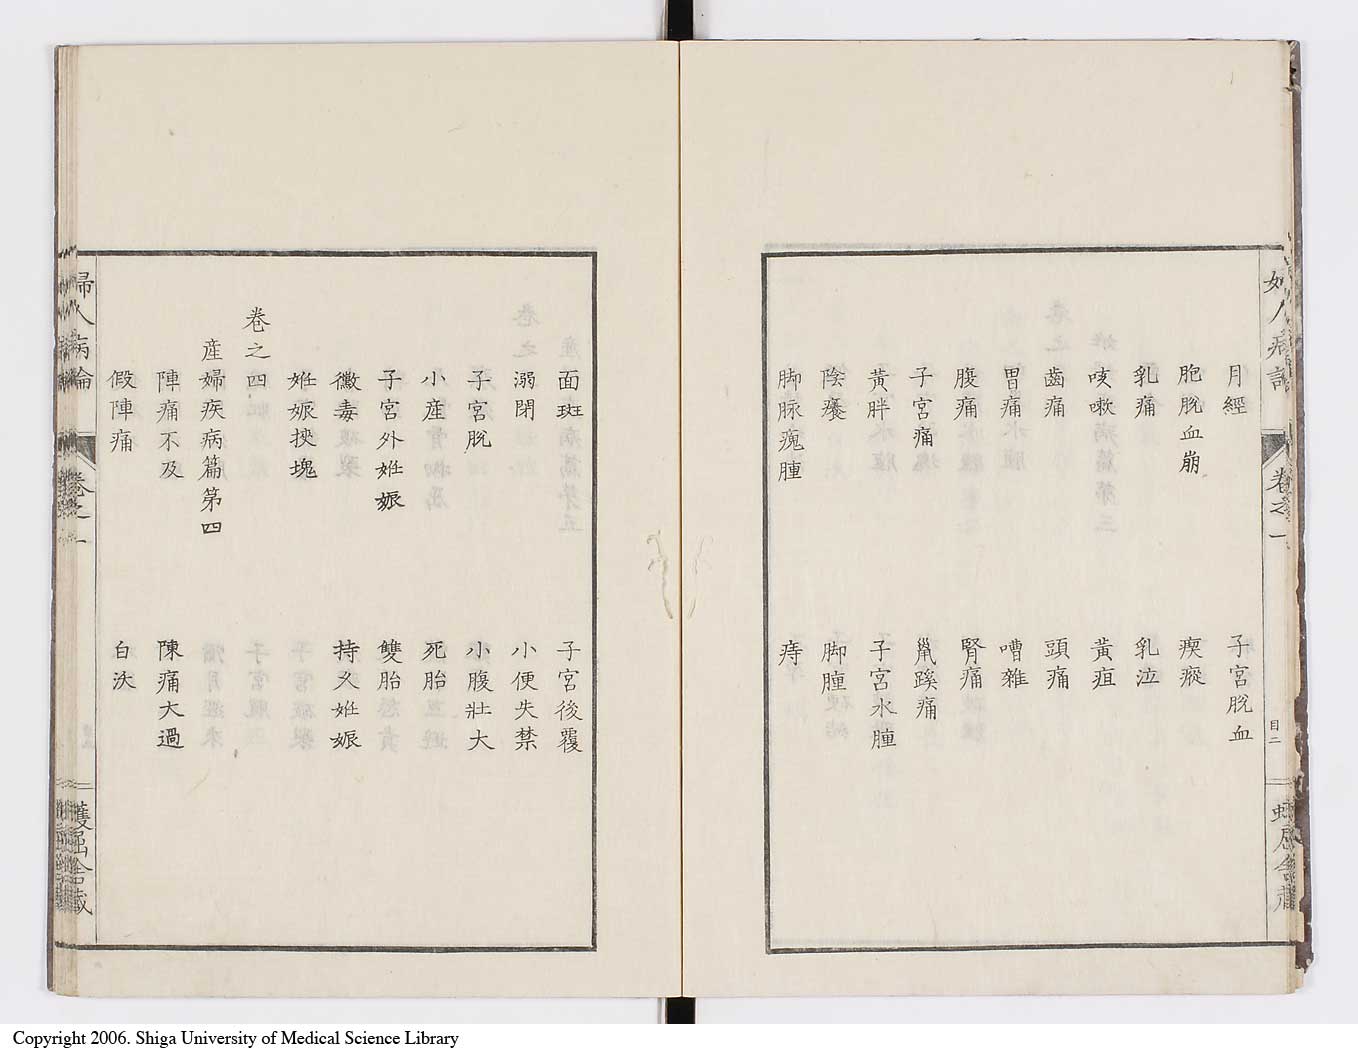 月經 子宮脫血
胞脫血崩 瘈瘲
乳痛 乳泣
咳嗽 黃疸
齒痛 頭痛
胃痛 嘈雜
腹痛 腎痛
子宮痛 鼠蹊痛
黃胖 子宮水腫
陰癢 脚腫
脚脉瘣腫 痔
目二
面斑 子宮後覆
溺閉 小便失禁
子宮脫 小腹壯大
小產 死胎
子宮外姙娠 雙胎
黴毒 持久姙娠
姙娠挾塊
卷之四
産婦疾病篇第四
陣痛不及 陳痛太過
假陣痛 白沃
婦人病論 卷之一
Copyright 2006. Shiga University of Medical Science Library